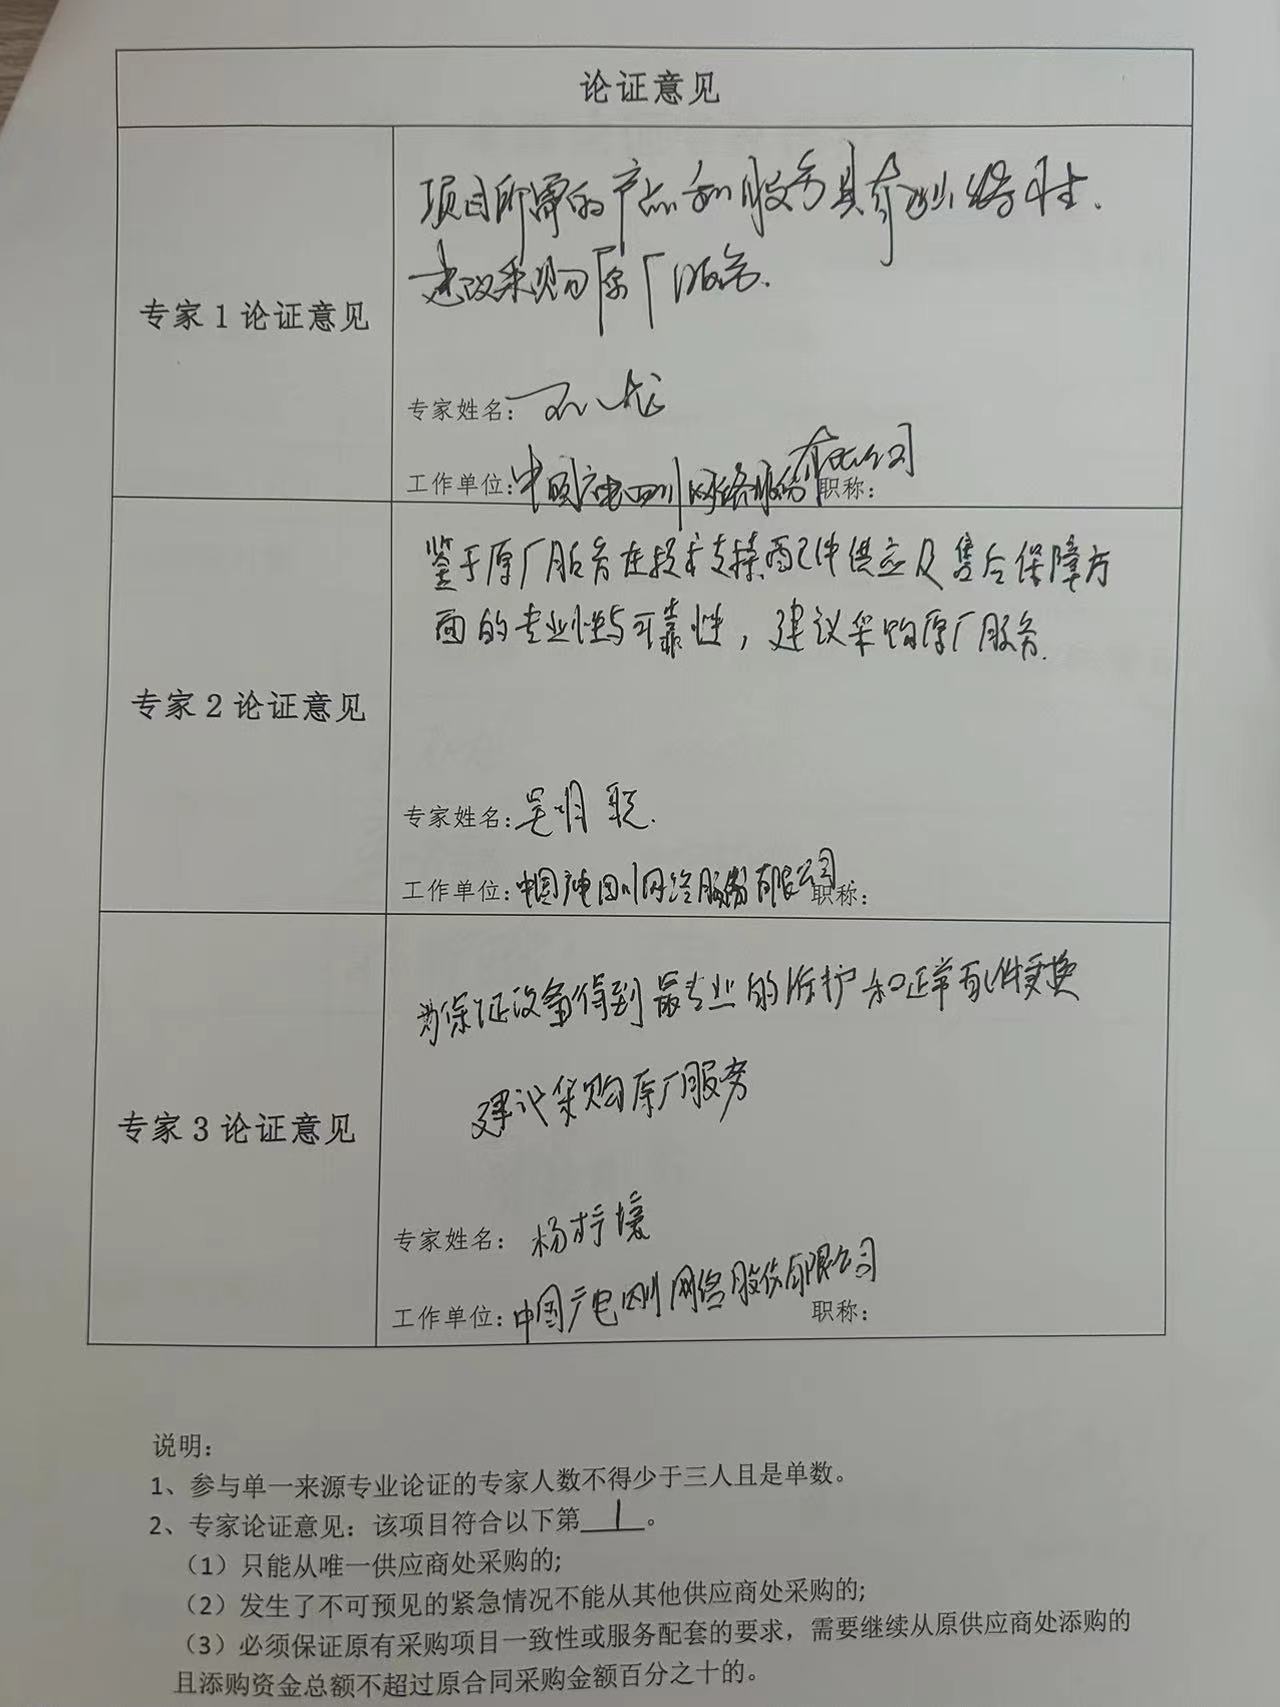 论证意见
专家1论证意见
项目所需的产品和服务具有独特性.
建议采购原厂服务.
专家姓名:
工作单位:中国广电四川网络股份有限公司 职称:
专家2论证意见
鉴于原厂服务在技术支持、配件供应及售后保障方
面的专业性与可靠性，建议采购原厂服务.
专家姓名:吴明聪.
工作单位:中国广电四川网络股份有限公司 职称:
专家3论证意见
为保证设备得到最专业的保护和正常配件更换
建议采购原厂服务
专家姓名: 杨
工作单位:中国广电四川网络股份有限公司 职称:
说明:
1、参与单一来源专业论证的专家人数不得少于三人且是单数。
2、专家论证意见：该项目符合以下第 1 。
（1）只能从唯一供应商处采购的;
（2）发生了不可预见的紧急情况不能从其他供应商处采购的;
（3）必须保证原有采购项目一致性或服务配套的要求，需要继续从原供应商处添购的
且添购资金总额不超过原合同采购金额百分之十的。